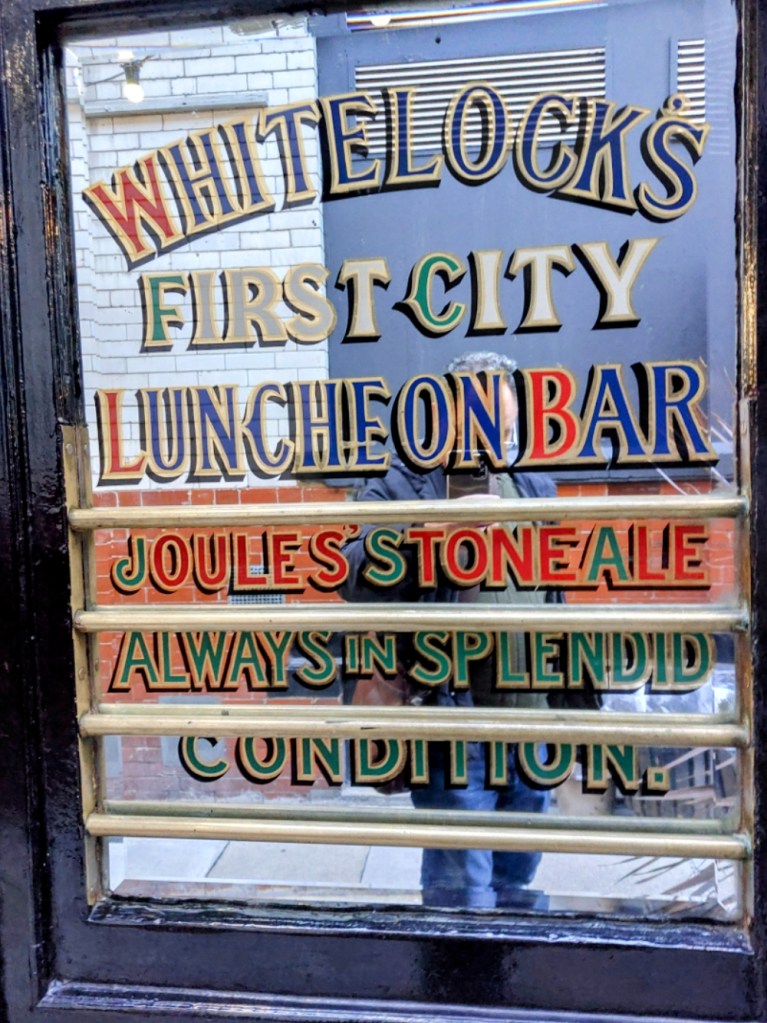 WHITELOCK'S
FIRST CITY
LUNCHEON BAR
JOULES' STONE ALE
ALWAYS IN SPLENDID
CONDITION.